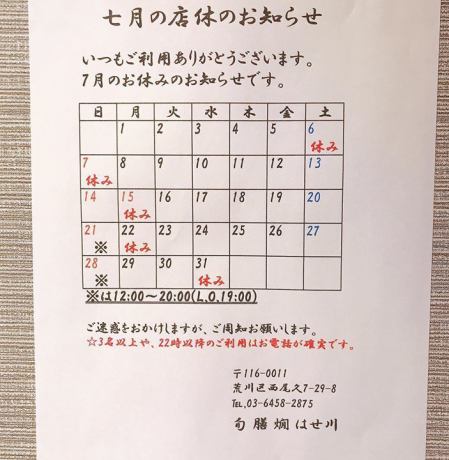 七月の店休のお知らせ
いつもご利用ありがとうございます。
7月のお休みのお知らせです。
日 月 火 水 木 金 土
1 2 3 4 5 6
休み
7 8 9 10 11 12 13
休み
14 15 16 17 18 19 20
休み
21 22 23 24 25 26 27
※ 休み
28 29 30 31
※ 休み
※は12:00～20:00(L,O,19:00)
ご迷惑をおかけしますが、ご周知お願いします。
☆3名以上や、22時以降のご利用はお電話が確実です。
〒116-0011
荒川区西尾久7-29-8
TEL,03-6458-2875
旬膳燗 はせ川